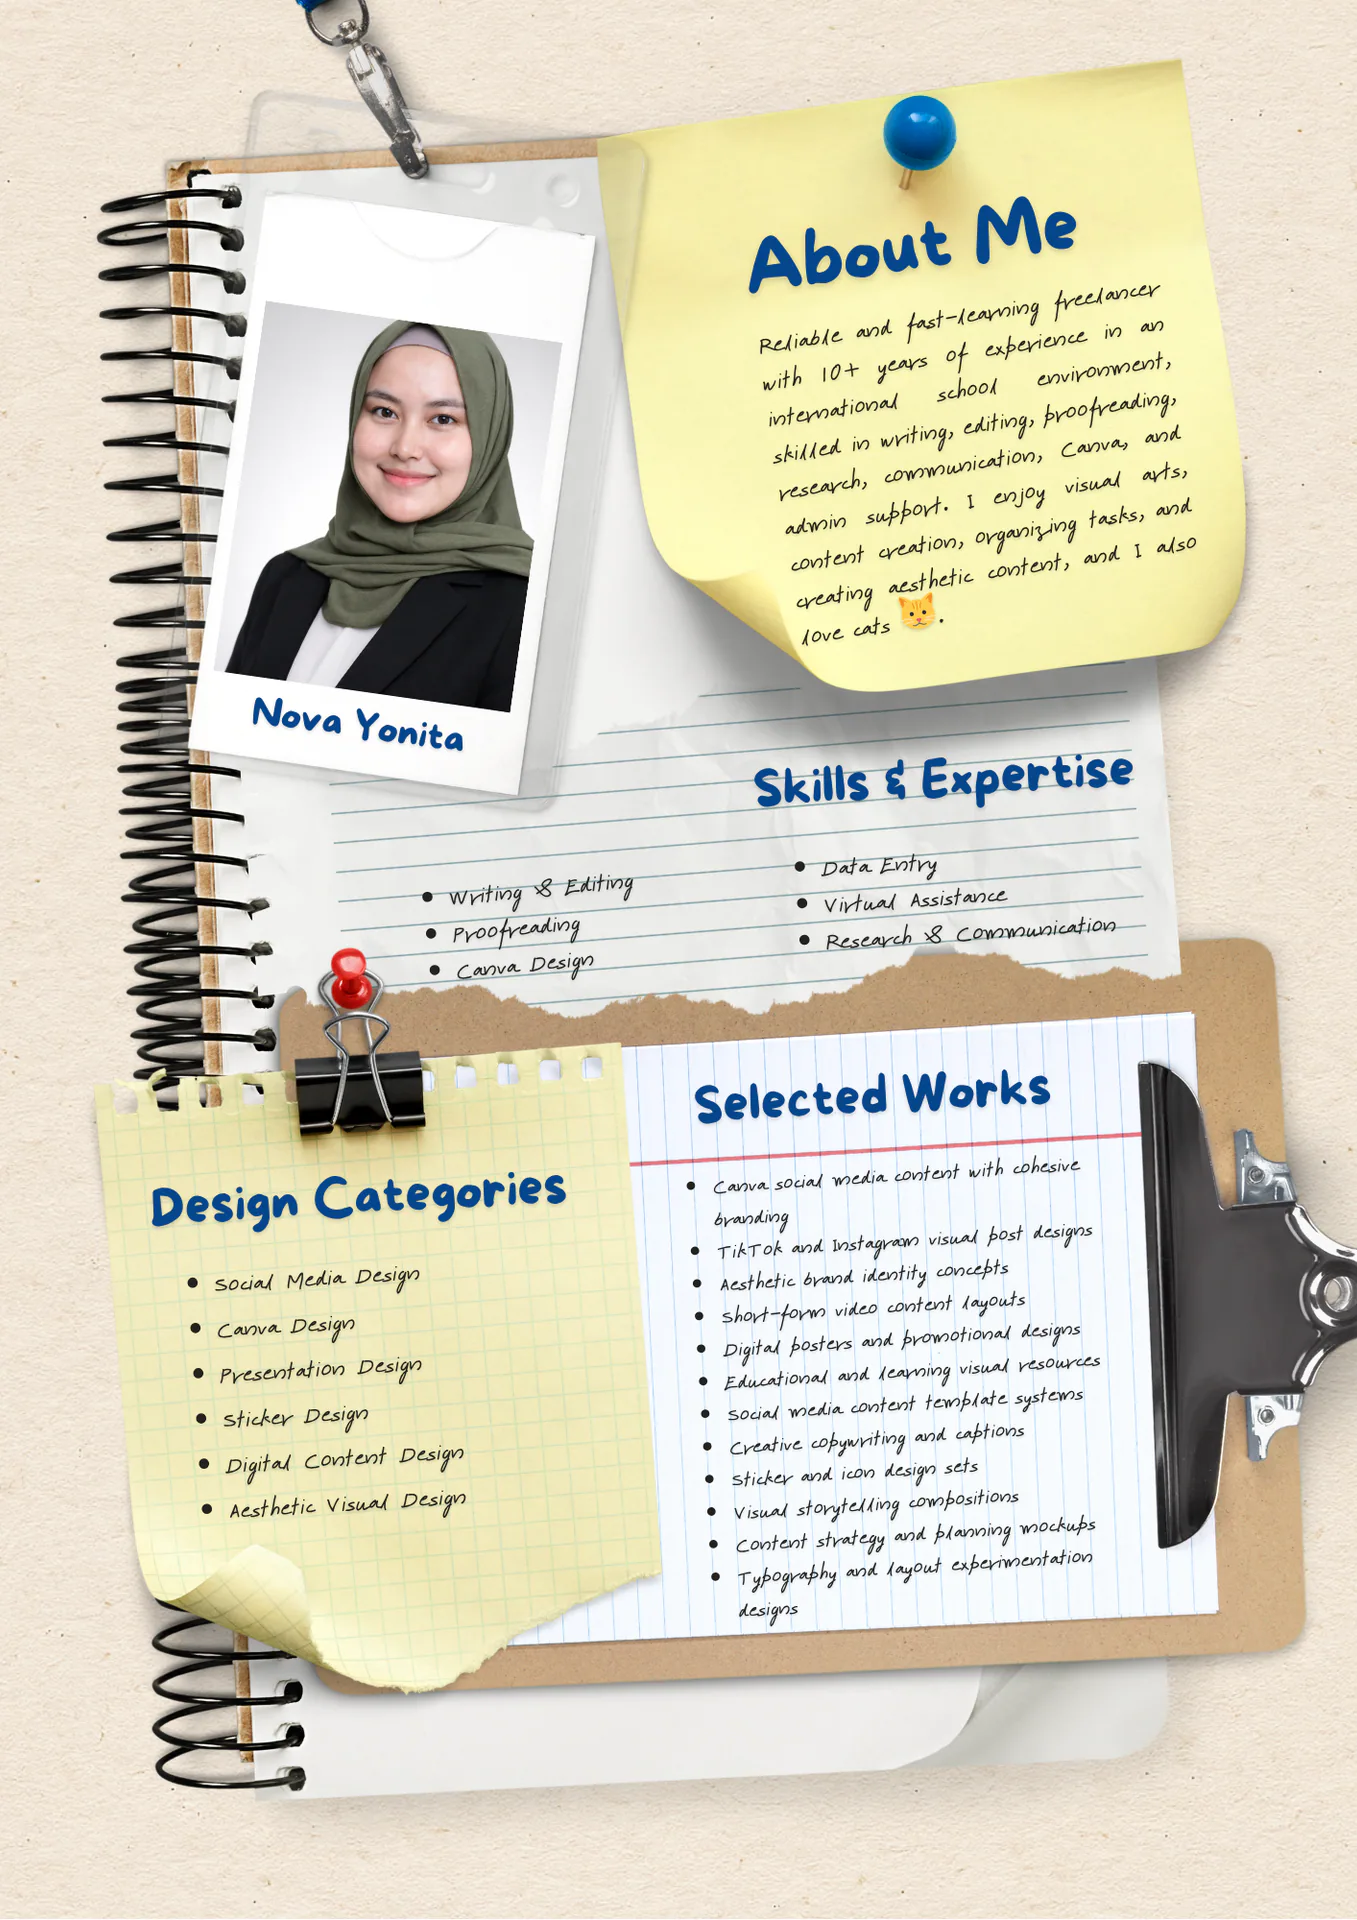 About Me
Reliable and fast-learning freelancer
with 10+ years of experience in an
international school environment,
skilled in writing, editing, proofreading,
research, communication, Canva, and
admin support. I enjoy visual arts,
content creation, organizing tasks, and
creating aesthetic content, and I also
love cats 🐱.
Nova Yonita
Skills & Expertise
• Writing & Editing
• Proofreading
• Canva Design
• Data Entry
• Virtual Assistance
• Research & Communication
Design Categories
• Social Media Design
• Canva Design
• Presentation Design
• Sticker Design
• Digital Content Design
• Aesthetic Visual Design
Selected Works
• Canva social media content with cohesive
branding
• TikTok and Instagram visual post designs
• Aesthetic brand identity concepts
• Short-form video content layouts
• Digital posters and promotional designs
• Educational and learning visual resources
• Social media content template systems
• Creative copywriting and captions
• Sticker and icon design sets
• Visual storytelling compositions
• Content strategy and planning mockups
• Typography and layout experimentation
designs